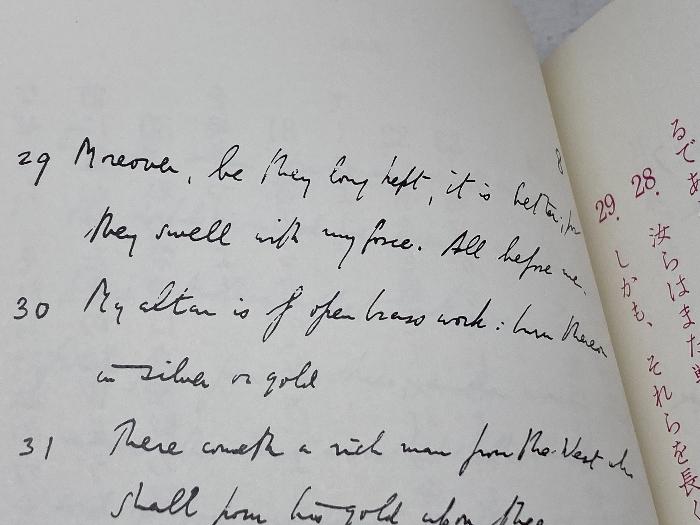 29 Moreover, be they long kept, it is better; for
they swell with my force. All before me.
30 My altar is of open brass work: burn thereon
in silver or gold
31 There cometh a rich man from the West who
shall pour his gold upon thee
8
るであ
28. 汝らはまた
29. しかも、それらを長く